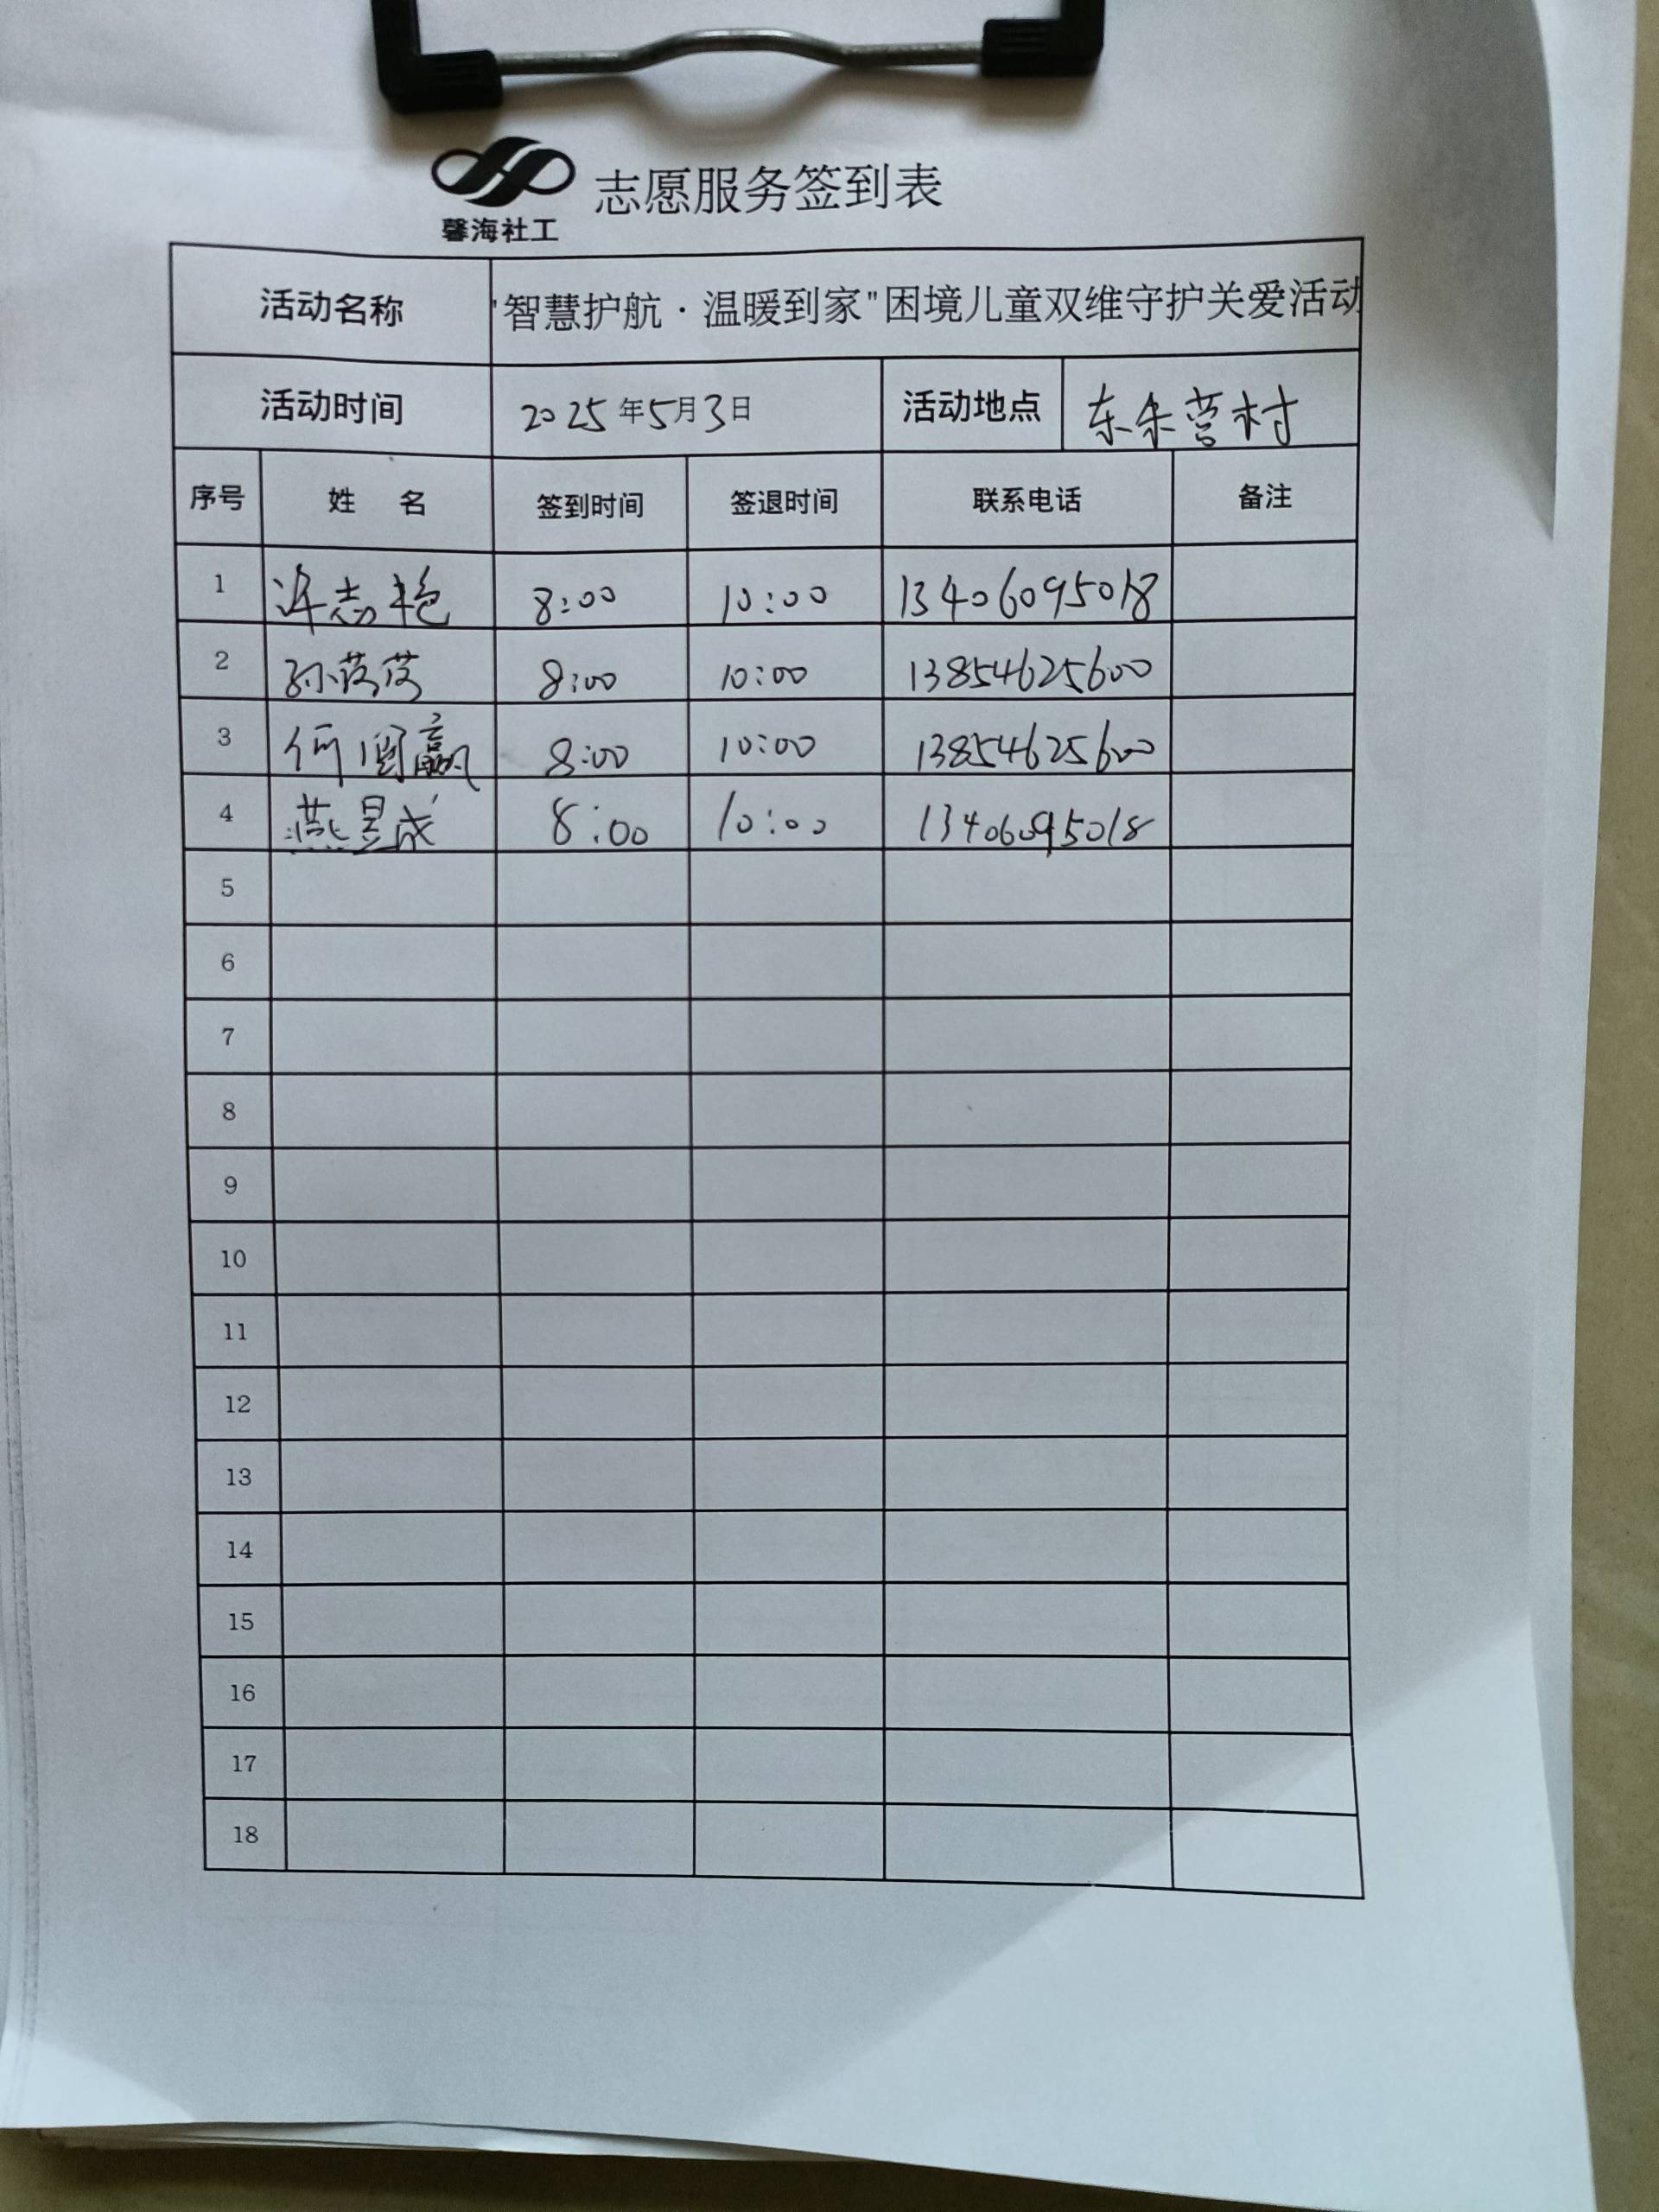 馨海社工
志愿服务签到表
活动名称 "智慧护航·温暖到家"困境儿童双维守护关爱活动
活动时间 2025年5月3日 活动地点 东朱营村
序号 姓 名 签到时间 签退时间 联系电话 备注
1 许志艳 8:00 10:00 13406095018
2 孙茂茂 8:00 10:00 13854625600
3 何国赢 8:00 10:00 13854625600
4 燕昱成 8:00 10:00 13406095018
5
6
7
8
9
10
11
12
13
14
15
16
17
18